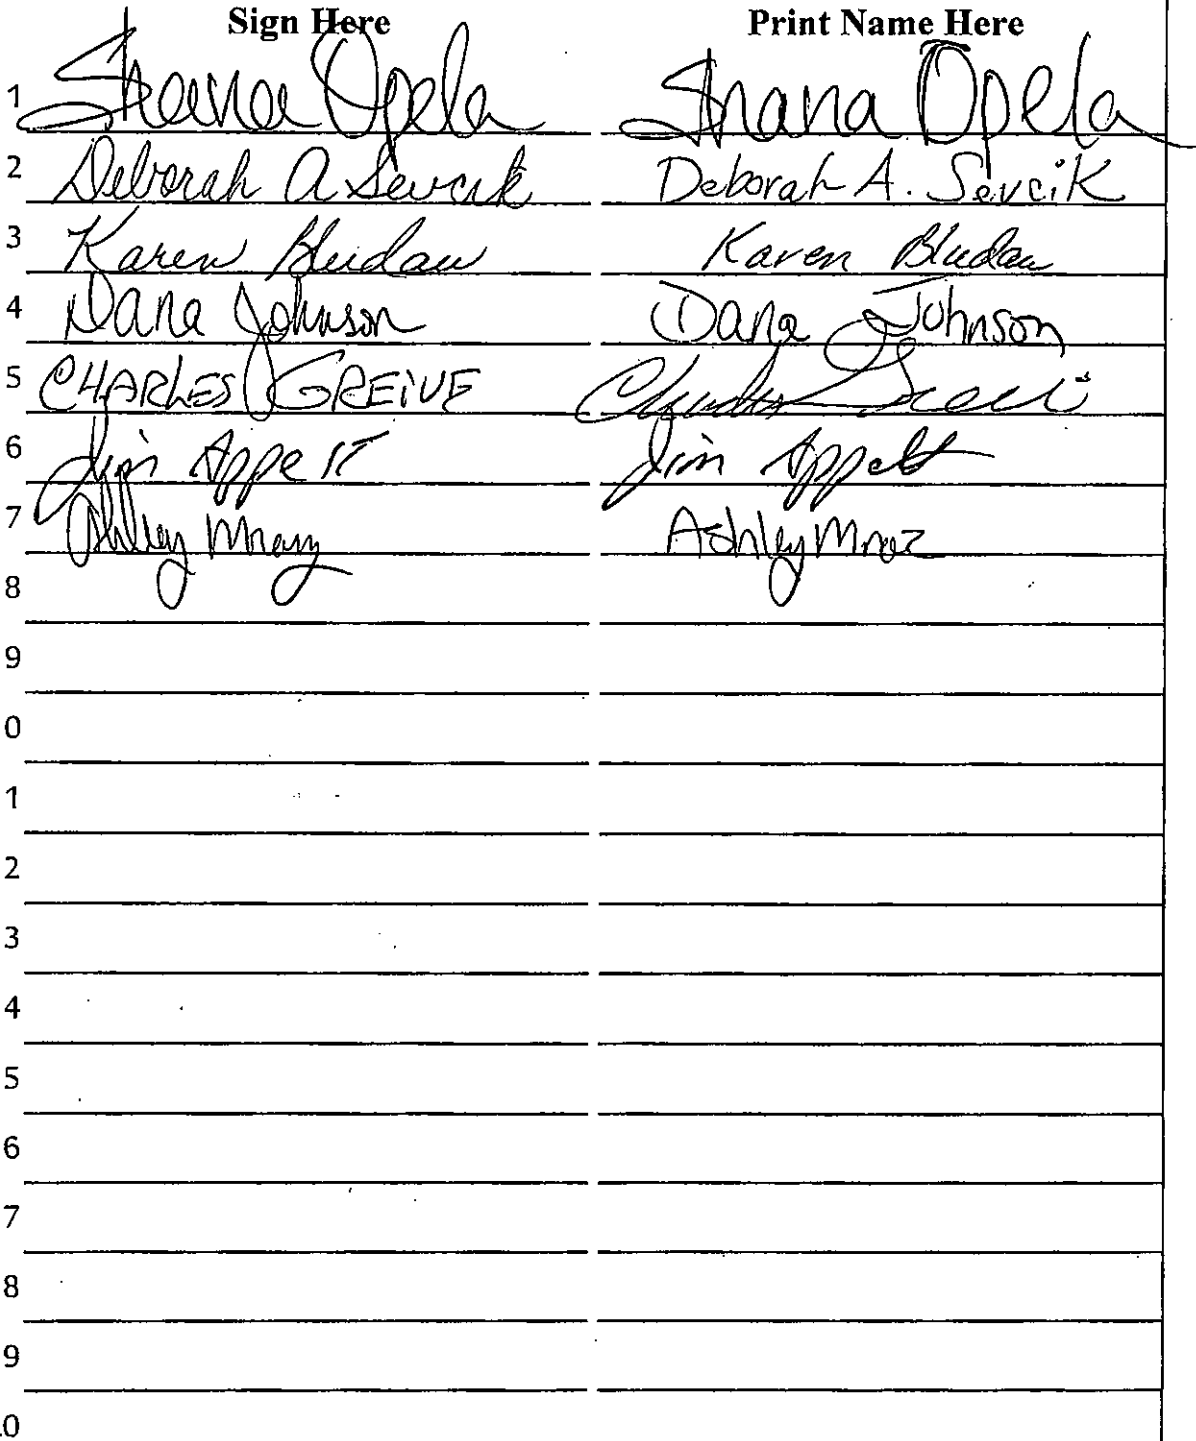 Sign Here Print Name Here
1 Shana Opela Shana Opela
2 Deborah A Sevcik Deborah A. Sevcik
3 Karen Bludau Karen Bludau
4 Dana Johnson Dana Johnson
5 CHARLES GREIVE Charles
6 Jim Appelt Jim Appelt
7 Ashley Ashley
8
9
0
1
2
3
4
5
6
7
8
9
0